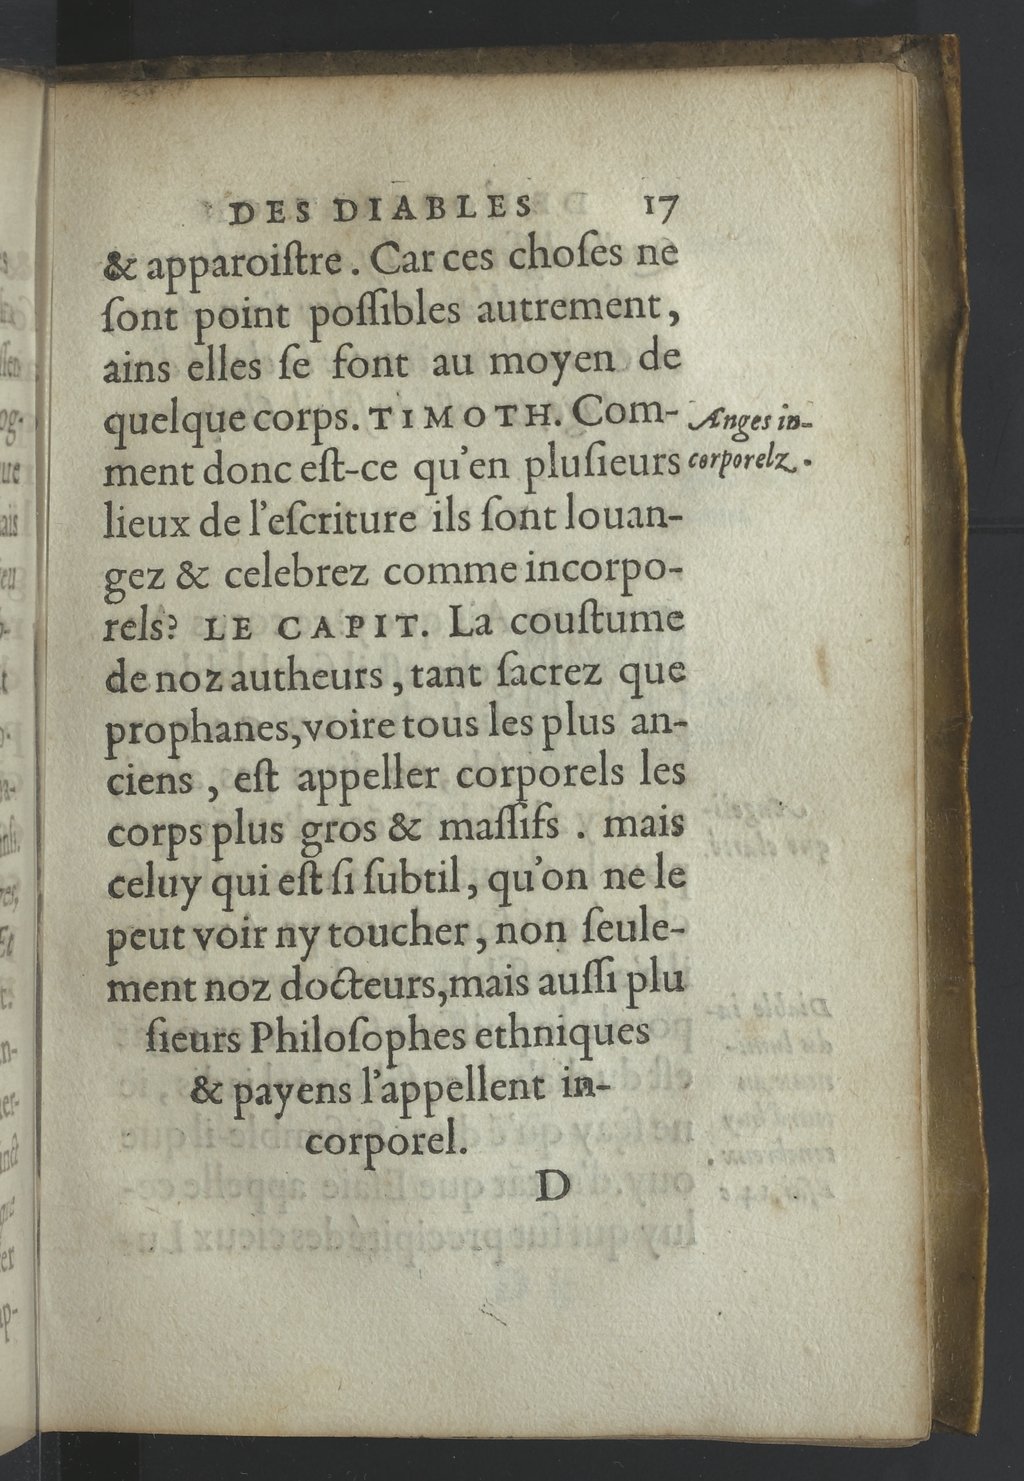 DES DIABLES 17
& apparoiſtre. Car ces choſes ne
ſont point poſſibles autrement,
ains elles ſe font au moyen de
quelque corps. TIMOTH. Com-
Anges in-
ment donc eſt-ce qu'en pluſieurs
corporelz.
lieux de l'eſcriture ils ſont louan-
gez & celebrez comme incorpo-
rels? LE CAPIT. La couſtume
de noz autheurs, tant ſacrez que
prophanes, voire tous les plus an-
ciens, eſt appeller corporels les
corps plus gros & maſſifs. mais
celuy qui eſt ſi ſubtil, qu'on ne le
peut voir ny toucher, non ſeule-
ment noz docteurs, mais auſſi plu
ſieurs Philoſophes ethniques
& payens l'appellent in-
corporel.
D